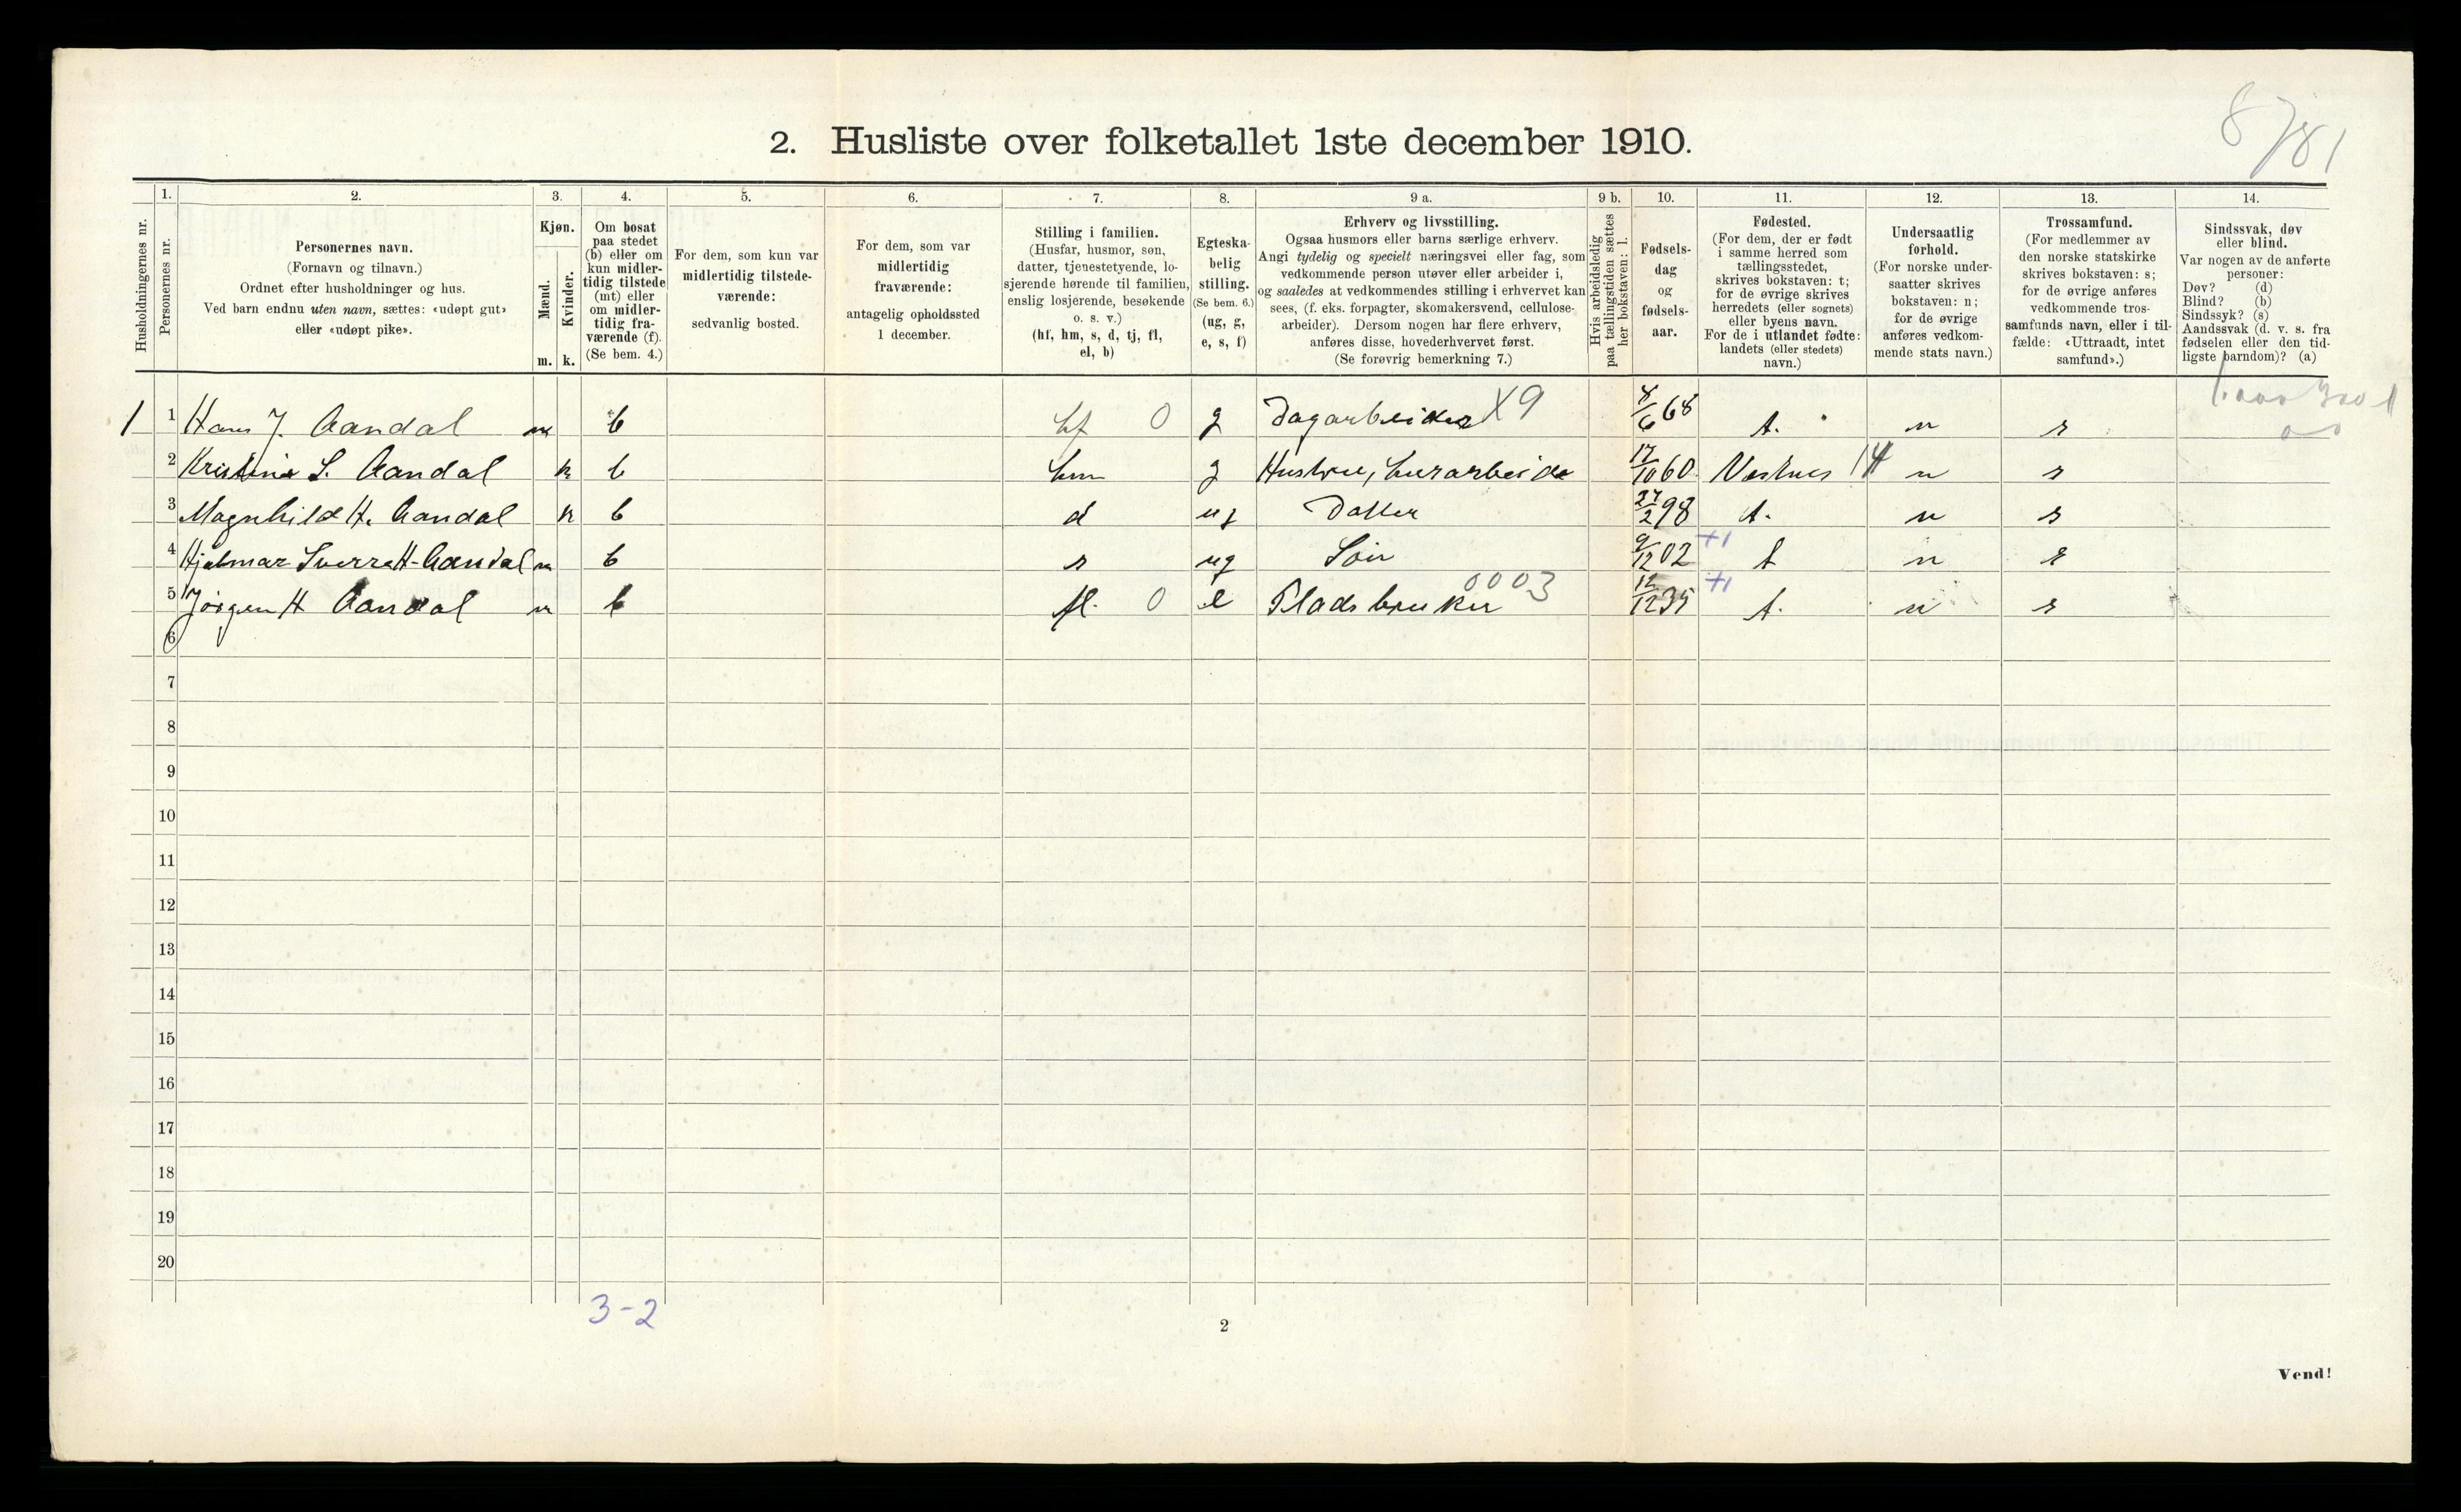 8781
2. Husliste over folketallet 1ste december 1910.
Husholdningernes nr.
1. Personernes nr.
2. Personernes navn.
(Fornavn og tilnavn.)
Ordnet efter husholdninger og hus.
Ved barn endnu uten navn, sættes: «udøpt gut»
eller «udøpt pike».
3. Kjøn.
Mænd. m.
Kvinder. k.
4. Om bosat
paa stedet
(b) eller om
kun midler-
tidig tilstede
(mt) eller
om midler-
tidig fra-
værende (f).
(Se bem. 4.)
5. For dem, som kun var
midlertidig tilstede-
værende:
sedvanlig bosted.
6. For dem, som var
midlertidig
fraværende:
antagelig opholdssted
1 december.
7. Stilling i familien.
(Husfar, husmor, søn,
datter, tjenestetyende, lo-
sjerende hørende til familien,
enslig losjerende, besøkende
o. s. v.)
(hf, hm, s, d, tj, fl,
el, b)
8. Egteska-
belig
stilling.
(Se bem. 6.)
(ug, g,
e, s, f)
9 a. Erhverv og livsstilling.
Ogsaa husmors eller barns særlige erhverv.
Angi tydelig og specielt næringsvei eller fag, som
vedkommende person utøver eller arbeider i,
og saaledes at vedkommendes stilling i erhvervet kan
sees, (f. eks. forpagter, skomakersvend, cellulose-
arbeider). Dersom nogen har flere erhverv,
anføres disse, hovederhvervet først.
(Se forøvrig bemerkning 7.)
9 b. Hvis arbeidsledig
paa tællingstiden sættes
her bokstaven: l.
10. Fødsels-
dag
og
fødsels-
aar.
11. Fødested.
(For dem, der er født
i samme herred som
tællingsstedet,
skrives bokstaven: t;
for de øvrige skrives
herredets (eller sognets)
eller byens navn.
For de i utlandet fødte:
landets (eller stedets)
navn.)
12. Undersaatlig
forhold.
(For norske under-
saatter skrives
bokstaven: n;
for de øvrige
anføres vedkom-
mende stats navn.)
13. Trossamfund.
(For medlemmer av
den norske statskirke
skrives bokstaven: s;
for de øvrige anføres
vedkommende tros-
samfunds navn, eller i til-
fælde: «Uttraadt, intet
samfund».)
14. Sindssvak, døv
eller blind.
Var nogen av de anførte
personer:
Døv? (d)
Blind? (b)
Sindssyk? (s)
Aandssvak (d. v. s. fra
fødselen eller den tid-
ligste barndom)? (a)
1 1 Hans J. Aandal m b hf 0 g Dagarbeider X9 4/6 68 t. n s
2 Kristina S. Aandal k b hm g Hustru, husarbeide 17/10 60 Vestnes 14 n s
3 Magnhild H. Aandal k b d ug Datter 27/2 98 t. n s
4 Hjalmar Sverre H. Aandal m b s ug Søn 9/12 02 +1 t n s
5 Jørgen H Aandal m b fl. 0 e Pladsbruker 0003 12/12 35 +1 t. n s
6
7
8
9
10
11
12
13
14
15
16
17
18
19
20
3-2
2
Vend!